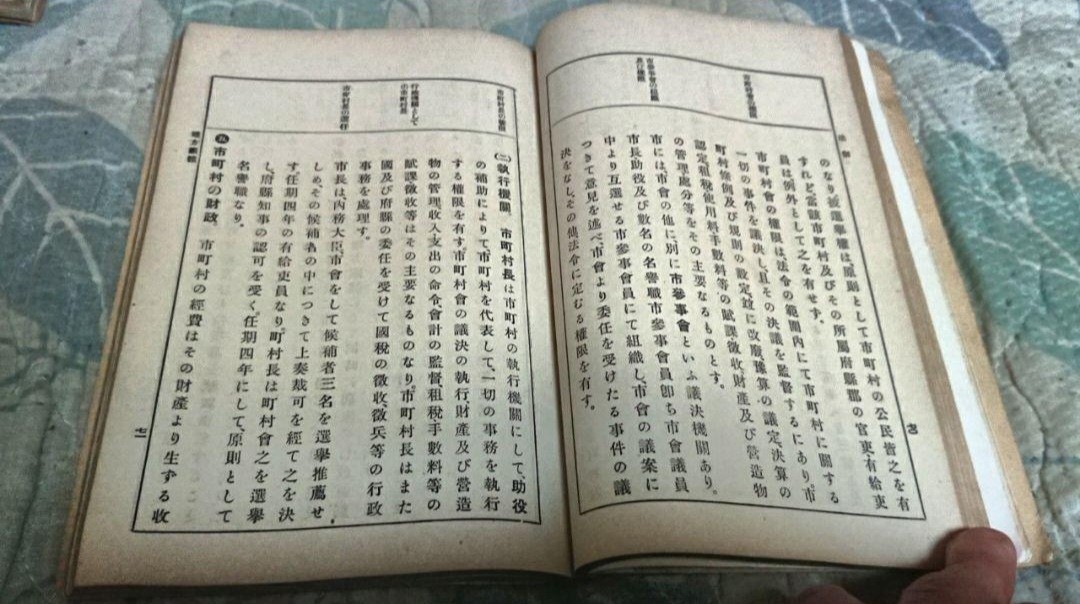 のなり被選擧權は、原則として市町村の公民皆之を有
すれど、當該市町村及びその所屬府縣郡の官吏、有給吏
員は例外として之を有せず。
市町村會の權限は、法令の範圍内にて市町村に關する
一切の事件を議決し、且その決議を監督するにあり。市
町村條例及び規則の設定、竝に改廢、豫算の議定、決算の
認定、租税使用料手數料等の賦課徴收、財産及び營造物
の管理處分等をその主要なるものとす。
市には市會の他に別に市參事會といふ議決機關あり。
市長助役及び數名の名譽職市參事會員即ち市會議員
中より互選せる市參事會員にて組織し、市會の議案に
つきて意見を述べ、市會より委任を受けたる事件の議
決をなし、その他法令に定むる權限を有す。
市町村會の權限
市參事會の組織
及び權限
(二)執行機關。市町村長は市町村の執行機關にして、助役
の補助によりて、市町村を代表して、一切の事務を執行
する權限を有す。市町村會の議決の執行、財産及び營造
物の管理、收入支出の命令、會計の監督、租税手數料等の
賦課徴收等はその主要なるものなり。市町村長はまた
國及び府縣の委任を受けて國税の徴收徴兵等の行政
事務を處理す。
市長は、内務大臣市會をして候補者三名を選擧推薦せ
しめ、その候補者の中につきて上奏裁可を經て之を決
す。任期四年の有給吏員なり。町村長は町村會之を選擧
し、府縣知事の認可を受く。任期四年にして、原則として
名譽職なり。
五 市町村の財政。市町村の經費はその財産より生ずる收
市町村長の權限
行政機關として
の市町村長
市町村長の選任
地方制度
七一